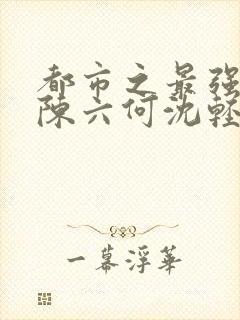 都市之最强
陳六何沈輕
一幕浮華